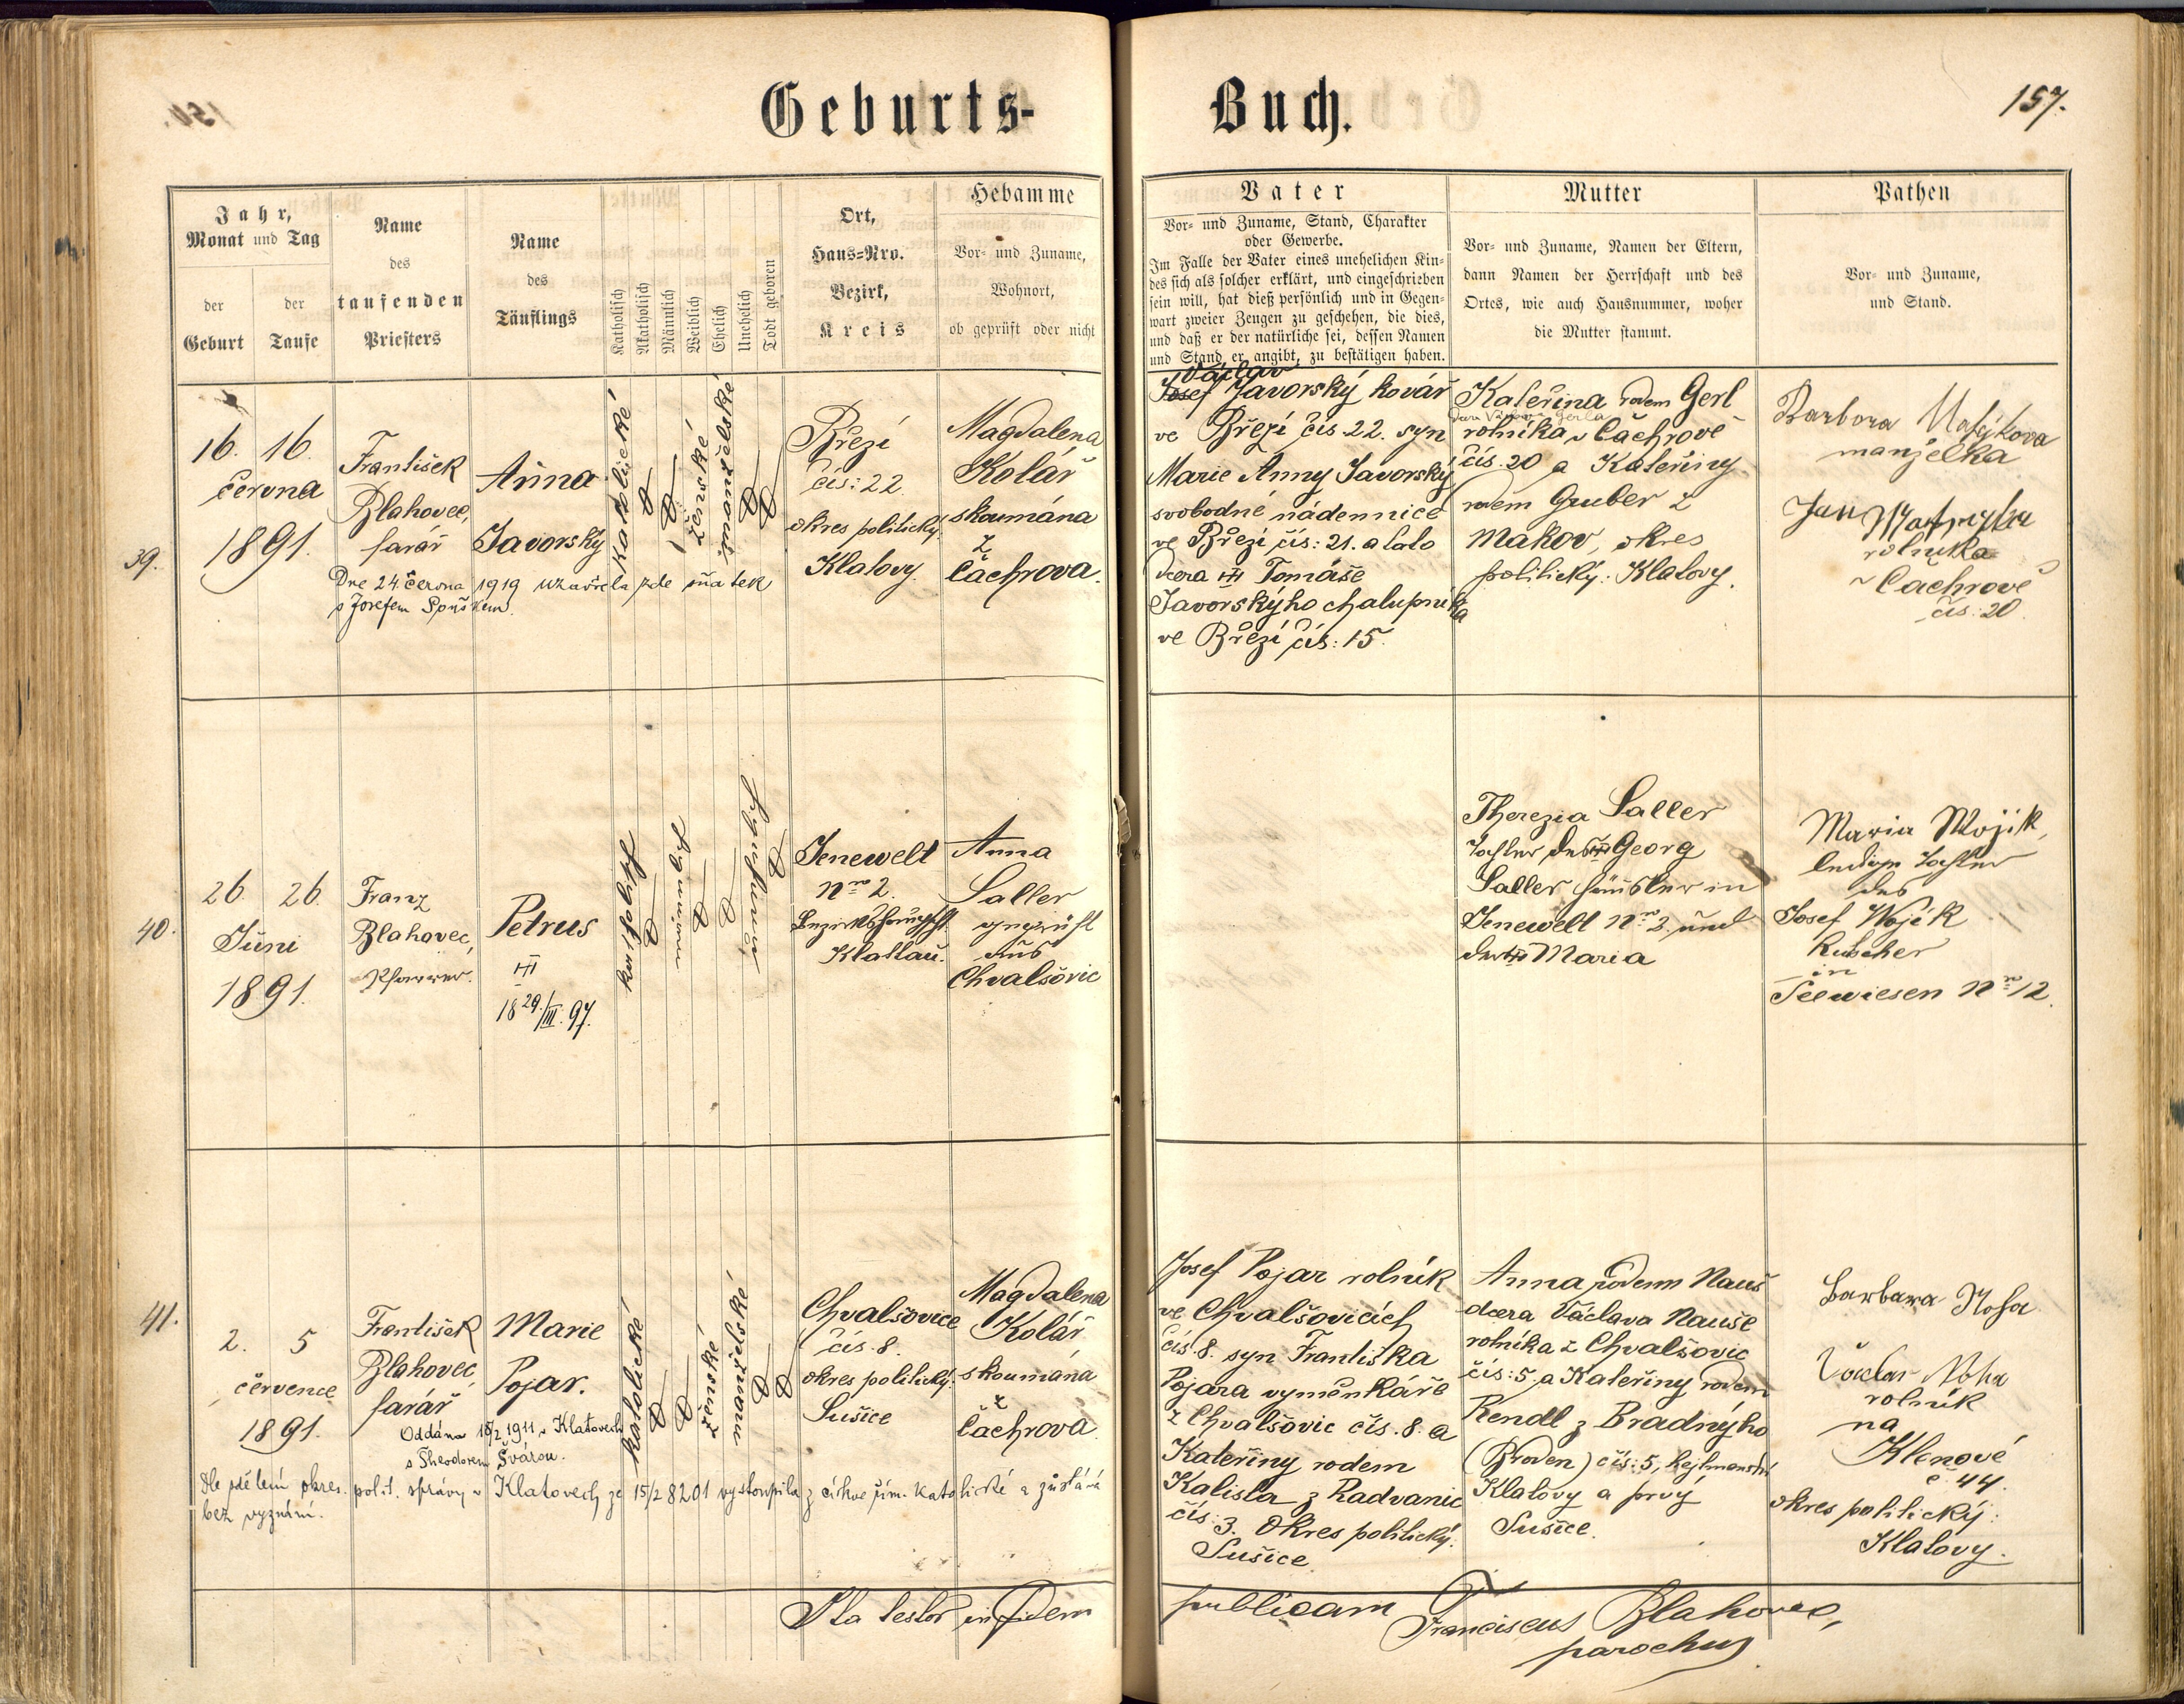 Geburts-
Buch.
157.
Jahr,
Monat und Tag
der
Geburt
der
Taufe
Name
des
taufenden
Priesters
Name
des
Täuflings
Katholisch
Akatholisch
Männlich
Weiblich
Ehelich
Unehelich
Todt geboren
Ort,
Haus-Nro.
Bezirk,
Kreis
Hebamme
Vor- und Zuname,
Wohnort,
ob geprüft oder nicht
Vater
Vor- und Zuname, Stand, Charakter
oder Gewerbe.
Im Falle der Vater eines unehelichen Kin-
des sich als solcher erklärt, und eingeschrieben
sein will, hat dieß persönlich und in Gegen-
wart zweier Zeugen zu geschehen, die dies,
und daß er der natürliche sei, dessen Namen
und Stand er angibt, zu bestätigen haben.
Mutter
Vor- und Zuname, Namen der Eltern,
dann Namen der Herrschaft und des
Ortes, wie auch Hausnummer, woher
die Mutter stammt.
Pathen
Vor- und Zuname,
und Stand.
39.
16. 16.
června
1891.
František
Blahovec,
farář
Anna
Javorský
Dne 24. června 1919 uzavřela zde sňatek
s Josefem
katolické
ženské
manželské
Březí
čís: 22
okres politický:
Klatovy.
Magdalena
Kolář
skoumána
z
Čachrova.
Václav
Josef Javorský kovář
ve Březí čís. 22. syn
Marie Anny Javorský
svobodné nádennice
ve Březí čís: 21. a tato
dcera Tomáše
Javorskýho chalupníka
ve Březí čís: 15.
Kateřina rodem Gerl
rolníka v Čachrově
čís. 20 a Kateřiny
rodem Gruber z
Makov, okres
politický: Klatovy.
Barbora
manželka
Jan
rolníka
v Čachrově
čís: 20.
40.
26. 26.
Juni
1891.
Franz
Blahovec,
Pfarrer.
Petrus
18 29./III. 97.
katholisch
männlich
unehelich
Jenewelt
Nro 2.
Bezirkshauptschft
Klattau.
Anna
Saller
geprüft
aus
Chvalšovic
Therezia Saller
Tochter des Georg
Saller Häusler in
Jenewelt Nro 2. und
der Maria
Maria Wojik,
ledige Tochter
des
Josef Wojik
Kutscher
in
Seewiesen Nro 12.
41.
2. 5
července
1891.
František
Blahovec,
farář
Marie
Pojar.
Oddána 18/2 1911 v Klatovech
s Theodorem Švárou.
Dle sdělení okres. polit. správy v Klatovech ze 15/2 8201 vystoupila z církve řím. katolické a zůstává
bez vyznání.
katolické
ženské
manželské
Chvalšovice
čís. 8.
okres politický:
Sušice
Magdalena
Kolář
skoumána
z
Čachrova.
Josef Pojar rolník
ve Chvalšovicích
čís. 8. syn Františka
Pojara vyměnkáře
z Chvalšovic čís. 8. a
Kateřiny rodem
Kalista z Radvanic
čís: 3. okres politický:
Sušice
Anna rodem Nauš
dcera Václava Nauše
rolníka z Chvalšovic
čís: 5 a Kateřiny rodem
Rendl z Bradnýho
čís: 5, hejtmanství
Klatovy a prvý
Sušice.
Barbara
Václav
rolník
na
Klenové
č. 44.
okres politický:
Klatovy.
Ita testor in fidem
publicam Franciscus Blahovec,
parochus